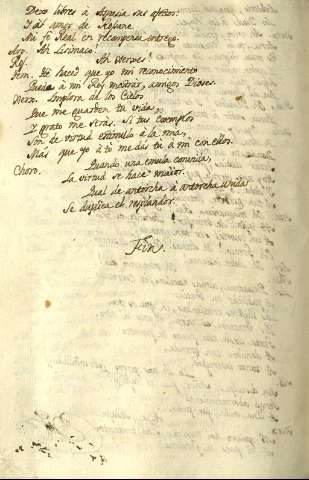 Dexo libres à Aspasia sus afectos:
Y al amor de Rosane
Mi fe Real en recompensa entrego.
Asp. Ah Lisimaco!
Ros. Ah Heroes!
Tem. Haced que yo mi reconocimiento
Pueda à mi Rey mostrar, amigos Dioses.
Xerx. Implora de los Cielos
Que me guarden tu vida,
Y grato me serás. Si tus exemplos
Son de virtud estimulo à la mia,
Mas que yo à tì me das tù à mi con ellos.
Choro. Quando una emula convida,
La virtud se hace maior.
Qual de antorcha à antorcha unida
Se duplica el resplandor.
Fin.